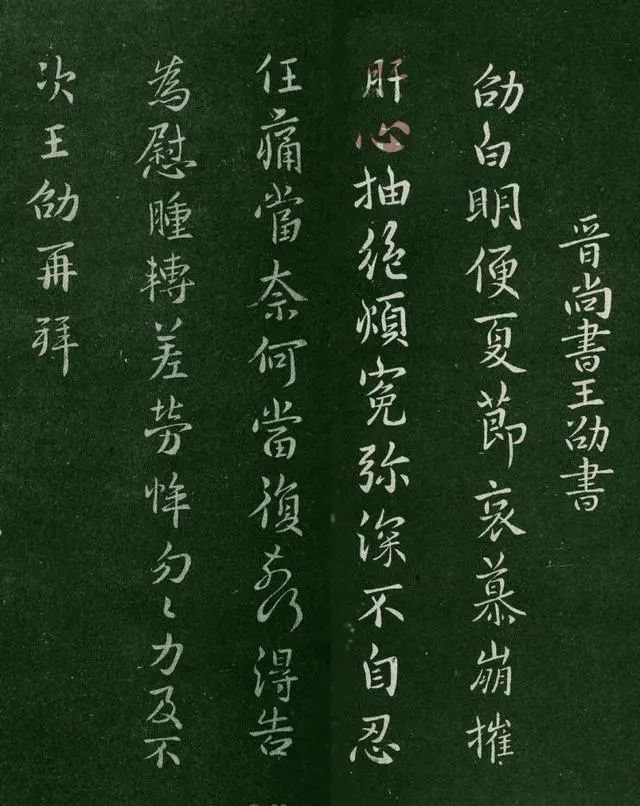 晉尚書王劭書
劭白明便夏節哀慕崩摧
肝心抽絕煩冤弥深不自忍
任痛當奈何當復奈何得告
為慰腫轉差勞悴勿〻力及不
次王劭再拜